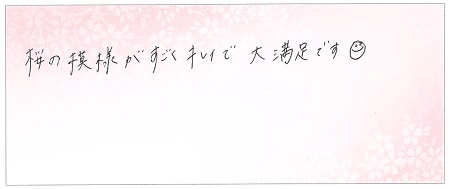 桜の模様がすごくキレイで 大満足です☺